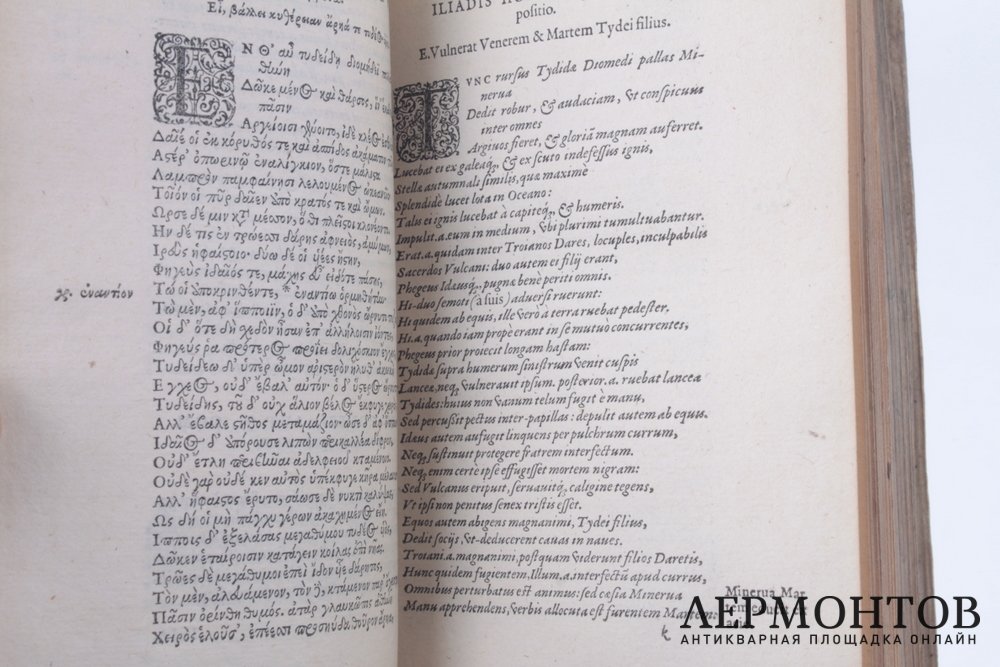 Εἶ, βάλλει κυθέρειαν ἄρηά τε
ΝΘ' αὖ τυδείδῃ διομήδεϊ
Δῶκε μένος καὶ θάρσος,
πᾶσιν
Ἀργείοισι γένοιτο, ἰδὲ κλέος
Δαῖέ οἱ ἐκ κόρυθός τε καὶ ἀσπίδος ἀκάματον
Ἀστέρ' ὀπωρινῷ ἐναλίγκιον, ὅστε μάλιστα
Λαμπρὸν παμφαίνησι λελουμένος ὠκεανοῖο
Τοῖόν οἱ πῦρ δαῖεν ἀπὸ κρατός τε καὶ ὤμων.
Ὦρσε δέ μιν κατὰ μέσσον, ὅθι πλεῖστοι κλονέοντο
Ἦν δέ τις ἐν τρώεσσι δάρης ἀφνειὸς, ἀμύμων,
Ἱρεὺς ἡφαίστοιο· δύω δέ οἱ υἱέες ἤστην,
Φηγεὺς ἰδαῖός τε, μάχης εὖ εἰδότε πάσης.
χρ. ἐναντίον
Τώ οἱ ὑποκρινθέντε, * ἐναντίω ὁρμηθήτην·
Τὼ μὲν, ἀφ' ἵπποιιν, ὁ δ' ἀπὸ χθονὸς ὤρνυτο
Οἱ δ' ὅτε δὴ σχεδὸν ἦσαν ἐπ' ἀλλήλοισιν ἰόντες,
Φηγεύς ῥα πρότερος προΐει δολιχόσκιον ἔγχος
Τυδείδεω δ' ὑπὲρ ὦμον ἀριστερὸν ἤλυθ' ἀκωκὴ
Ἔγχεος, οὐδ' ἔβαλ' αὐτόν· ὁ δ' ὕστερος
Τυδείδης, τοῦ δ' οὐχ ἅλιον βέλος ἔκφυγε χειρός
Ἀλλ' ἔβαλε στῆθος μεταμάζιον· ὦσε δ' ἀφ' ἵππων
Ἰδαῖος δ' ἀπόρουσε λιπὼν περικαλλέα δίφρον,
Οὐδ' ἔτλη περιβῆναι ἀδελφειοῦ κταμένοιο.
Οὐδὲ γὰρ οὐδέ κεν αὐτὸς ὑπέκφυγε κῆρα μέλαιναν
Ἀλλ' ἥφαιστος ἔρυτο, σάωσε δὲ νυκτὶ καλύψας,
Ὡς δή οἱ μὴ πάγχυ γέρων ἀκαχήμενος εἴη.
Ἵππους δ' ἐξελάσας μεγαθύμου τυδέος υἱὸς,
Δῶκεν ἑταίροισιν κατάγειν κοίλας ἐπὶ νῆας.
Τρῶες δὲ μεγάθυμοι ἐπεὶ ἴδον υἷε δάρητος
Τὸν μὲν, ἀλευάμενον, τὸν δὲ, κτάμενον παρ' ὄχεσφι
Πᾶσιν ὀρίνθη θυμός. ἀτὰρ γλαυκῶπις ἀθήνη
Χειρὸς ἑλοῦσ', ἐπέεσσι προσηύδα
ILIADIS
positio.
E. Vulnerat Venerem & Martem Tydei filius.
TVNC rursus Tydidæ Diomedi pallas Mi-
nerua
Dedit robur, & audaciam, vt conspicuus
inter omnes
Argiuos fieret, & gloriã magnam auferret.
Lucebat ei ex galeaq́;, & ex scuto indefessus ignis,
Stellæ autumnali similis, quæ maximè
Splendidè lucet lota in Oceano:
Talis ei ignis lucebat à capiteq́;, & humeris.
Impulit .a. eum in medium, vbi plurimi tumultuabantur.
Erat .a. quidam inter Troianos Dares, locuples, inculpabilis
Sacerdos Vulcani: duo autem ei filij erant,
Phegeus Idæusq́;, pugnæ benè periti omnis.
Hi-duo semoti (à suis) aduersi ruerunt:
Hi quidem ab equis, ille verò à terra ruebat pedester,
Hi .a. quando iam propè erant in se mutuò concurrentes,
Phegeus prior proiecit longam hastam:
Tydidæ supra humerum sinistrum venit cuspis
Lanceæ, neq; vulnerauit ipsum. posterior .a. ruebat lancea
Tydides: huius non vanum telum fugit e manu,
Sed percussit pectus inter-papillas: depulit autem ab equis.
Idæus autem aufugit linquens per pulchrum currum,
Neq; sustinuit protegere fratrem interfectum.
Neq; enim certè ipse effugisset mortem nigram:
Sed Vulcanus eripuit, seruauitq́; caligine tegens,
Vt ipsi non penitus senex tristis esset.
Equos autem abigens magnanimi, Tydei filius,
Dedit socijs, vt-deducerent cauas in naues.
Troiani .a. magnanimi, postquam viderunt filios Daretis,
Hunc quidem fugientem, Illum .a. interfectũ apud currus,
Omnibus perturbatus est animus: sed cæsia Minerua
Manu apprehendens, verbis allocuta est furentem Martem:
Minerua Mar
k
ЛЕРМОНТОВ
АНТИКВАРНАЯ ПЛОЩАДКА ОНЛАЙН